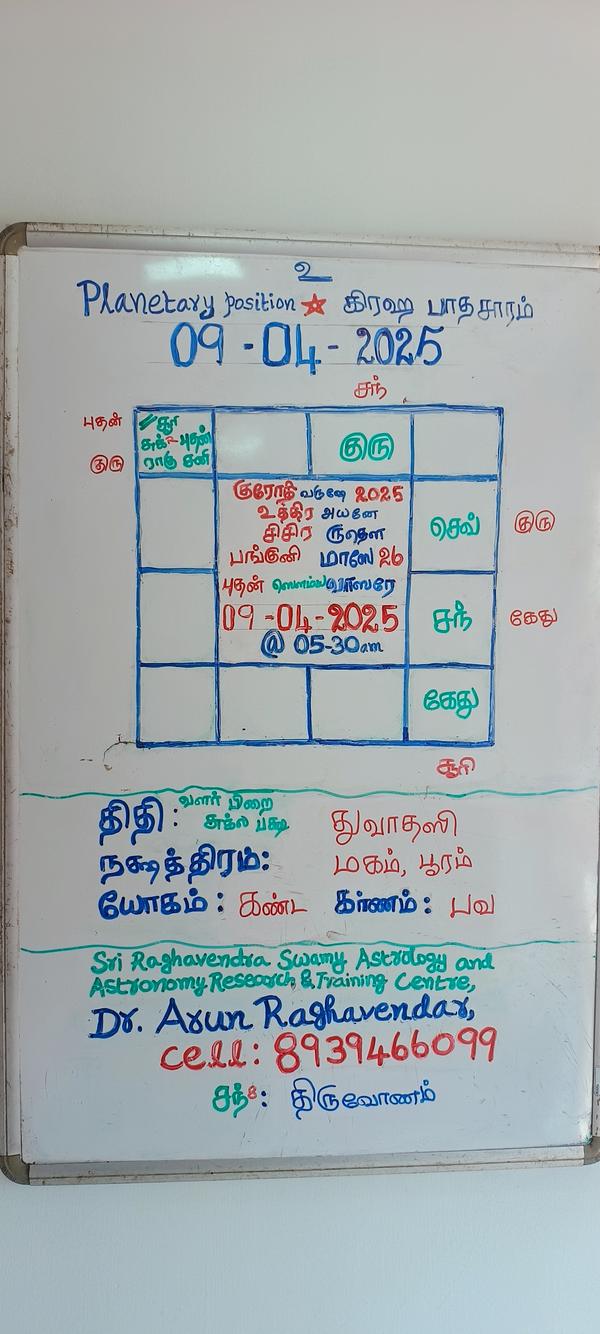 உ
Planetary position ★ கிரஹ பாதசாரம்
09-04-2025
சந்
புதன்
குரு
சூரி
சுக் புதன்
ராகு சனி
குரு
குரோதி வருஷே 2025
உத்திர அயனே
சிசிர ருதௌ
பங்குனி மாஸே 26
புதன் ஸௌம்ய வாஸரே
09-04-2025
@ 05-30am
செவ்
குரு
சந்
கேது
கேது
சூரி
திதி: வளர் பிறை சுக்ல பக்ஷ துவாதஸி
நக்ஷத்திரம்: மகம், பூரம்
யோகம்: கண்ட கர்ணம்: பவ
Sri Raghavendra Swamy Astrology and
Astronomy Research & Training Centre,
Dr. Arun Raghavendar,
cell: 8939466099
சந் 8: திருவோணம்